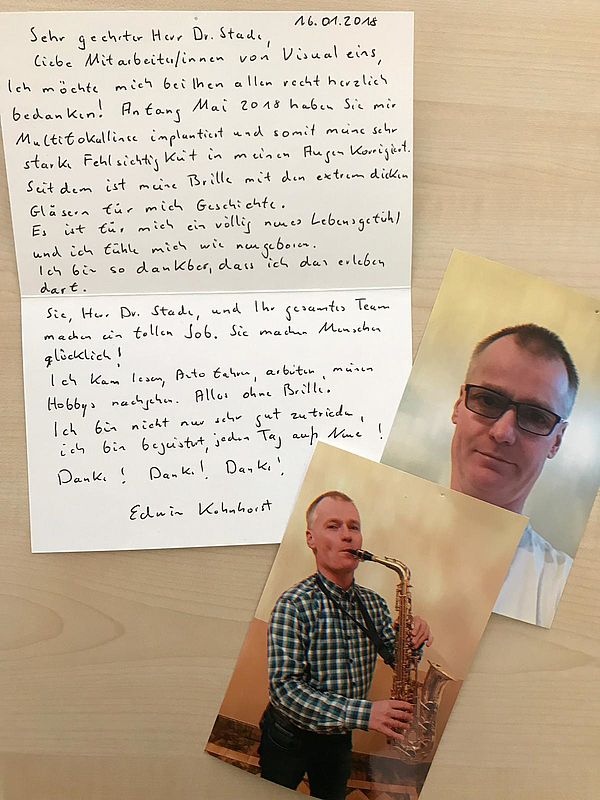 16.01.2018
Sehr geehrter Herr Dr. Stade,
Liebe Mitarbeiter/innen von Visual eins,
Ich möchte mich bei Ihnen allen recht herzlich
bedanken! Anfang Mai 2018 haben Sie mir
Multifokallinse implantiert und somit meine sehr
starke Fehlsichtigkeit in meinen Augen korrigiert.
Seitdem ist meine Brille mit den extrem dicken
Gläsern für mich Geschichte.
Es ist für mich ein völlig neues Lebensgefühl
und ich fühle mich wie neugeboren.
Ich bin so dankbar, dass ich das erleben
darf.
Sie, Herr Dr. Stade, und Ihr gesamtes Team
machen ein tollen Job. Sie machen Menschen
glücklich!
Ich kann lesen, Auto fahren, arbeiten, meinen
Hobbys nachgehen. Alles ohne Brille.
Ich bin nicht nur sehr gut zufrieden,
ich bin begeistert, jeden Tag aufs Neue!
Danke! Danke! Danke!
Edwin Kohnhorst